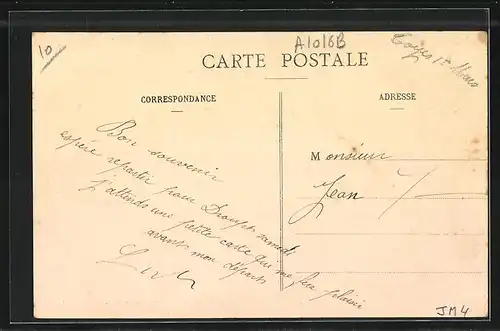 10
A1016B
1er Mars
CARTE POSTALE
CORRESPONDANCE
ADRESSE
Bon souvenir
espère repartir pour samedi
J'attends une petite carte qui me fera plaisir
avant mon départ
Monsieur
Jean
JM4